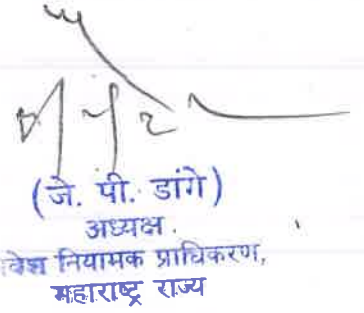 (जे. पी. डांगे)
अध्यक्ष.
वेश नियामक प्राधिकरण,
महाराष्ट्र राज्य